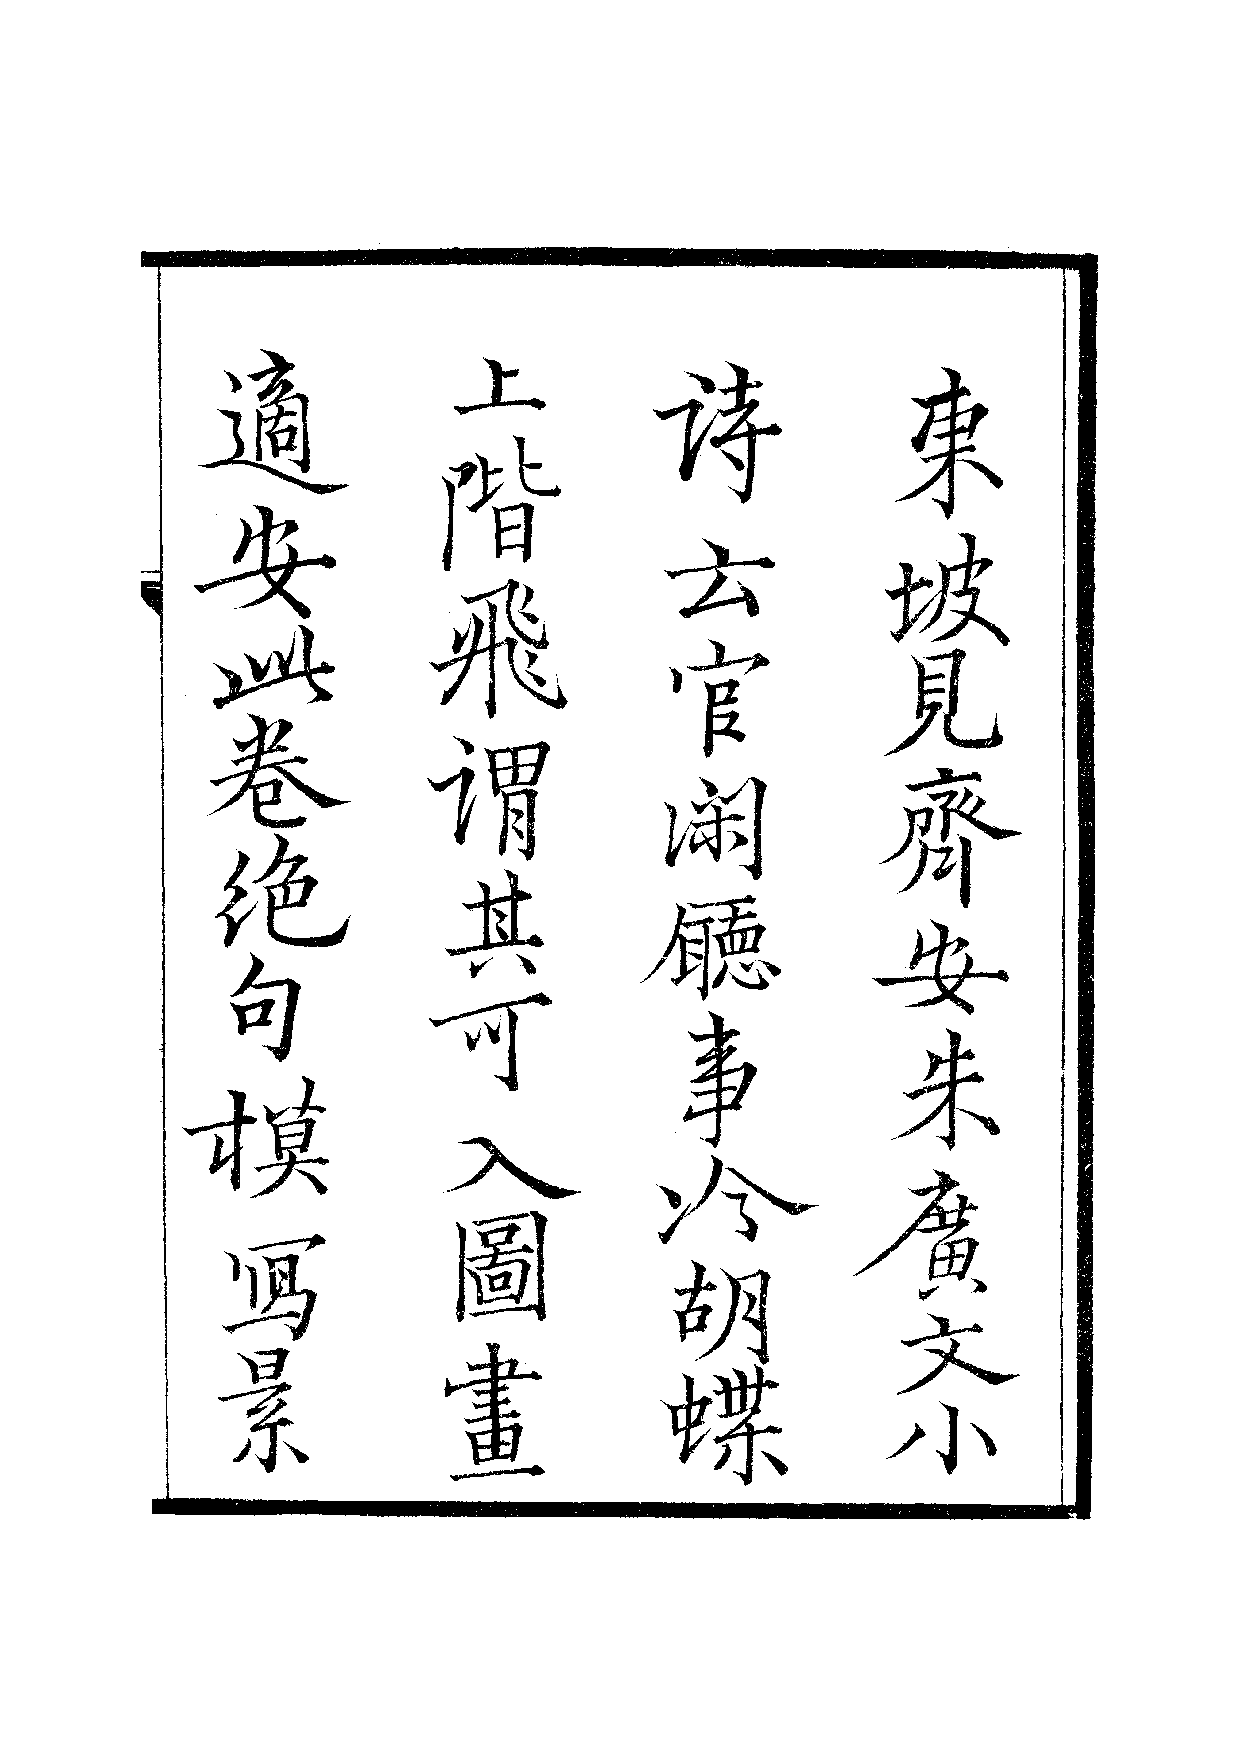 東坡見齊安朱廣文小
詩云官闲廳事冷胡蝶
上階飛謂其可入圖畫
適安此卷絶句模寫景